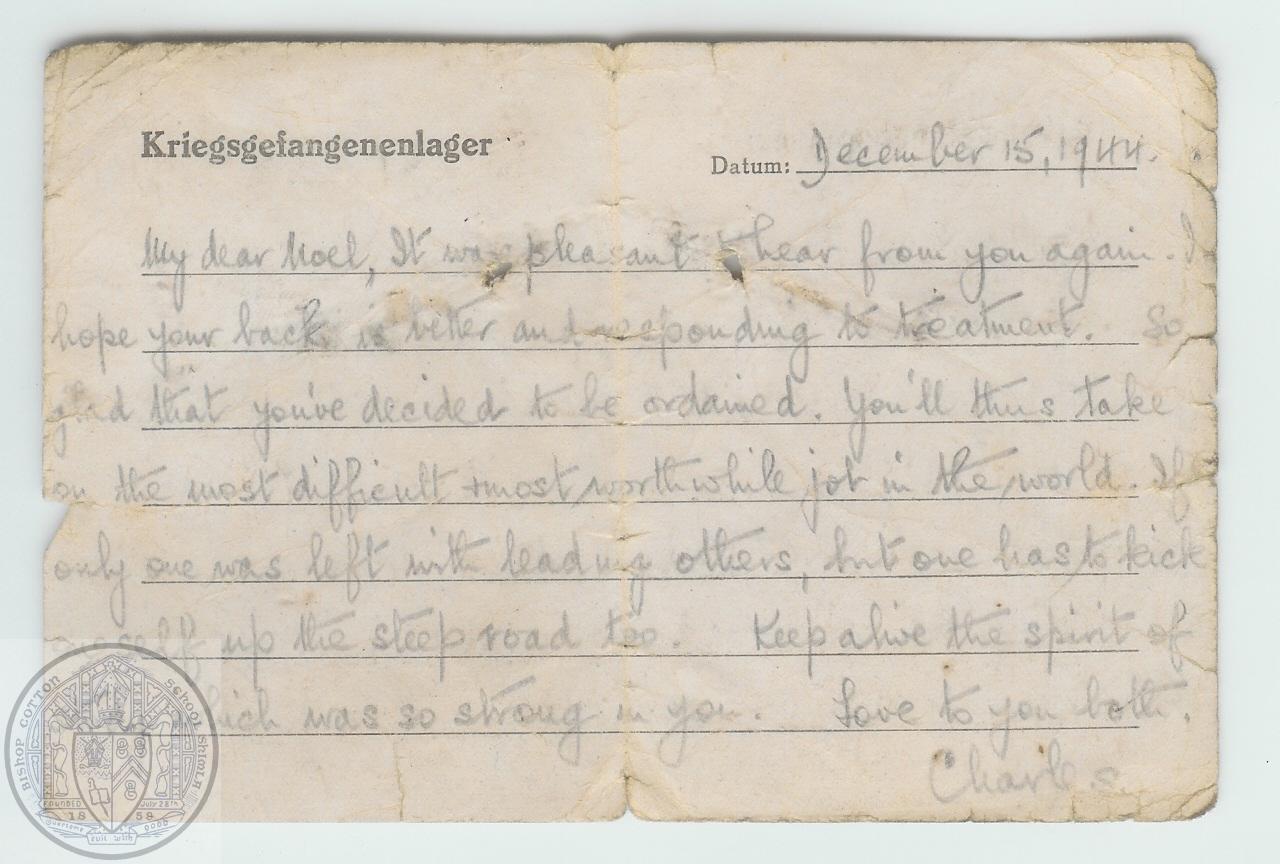 Kriegsgefangenenlager
Datum: December 15, 1944.
My dear Noel, It was pleasant to hear from you again. I
hope your back is better and responding to treatment. So
glad that you've decided to be ordained. You'll thus take
on the most difficult + most worthwhile job in the world. If
only one was left with leading others, but one has to kick
oneself up the steep road too. Keep alive the spirit of
which was so strong in you. Love to you both.
Charles
BISHOP COTTON SCHOOL SHIMLA
FOUNDED July 28th
1859
Overcome evil with good